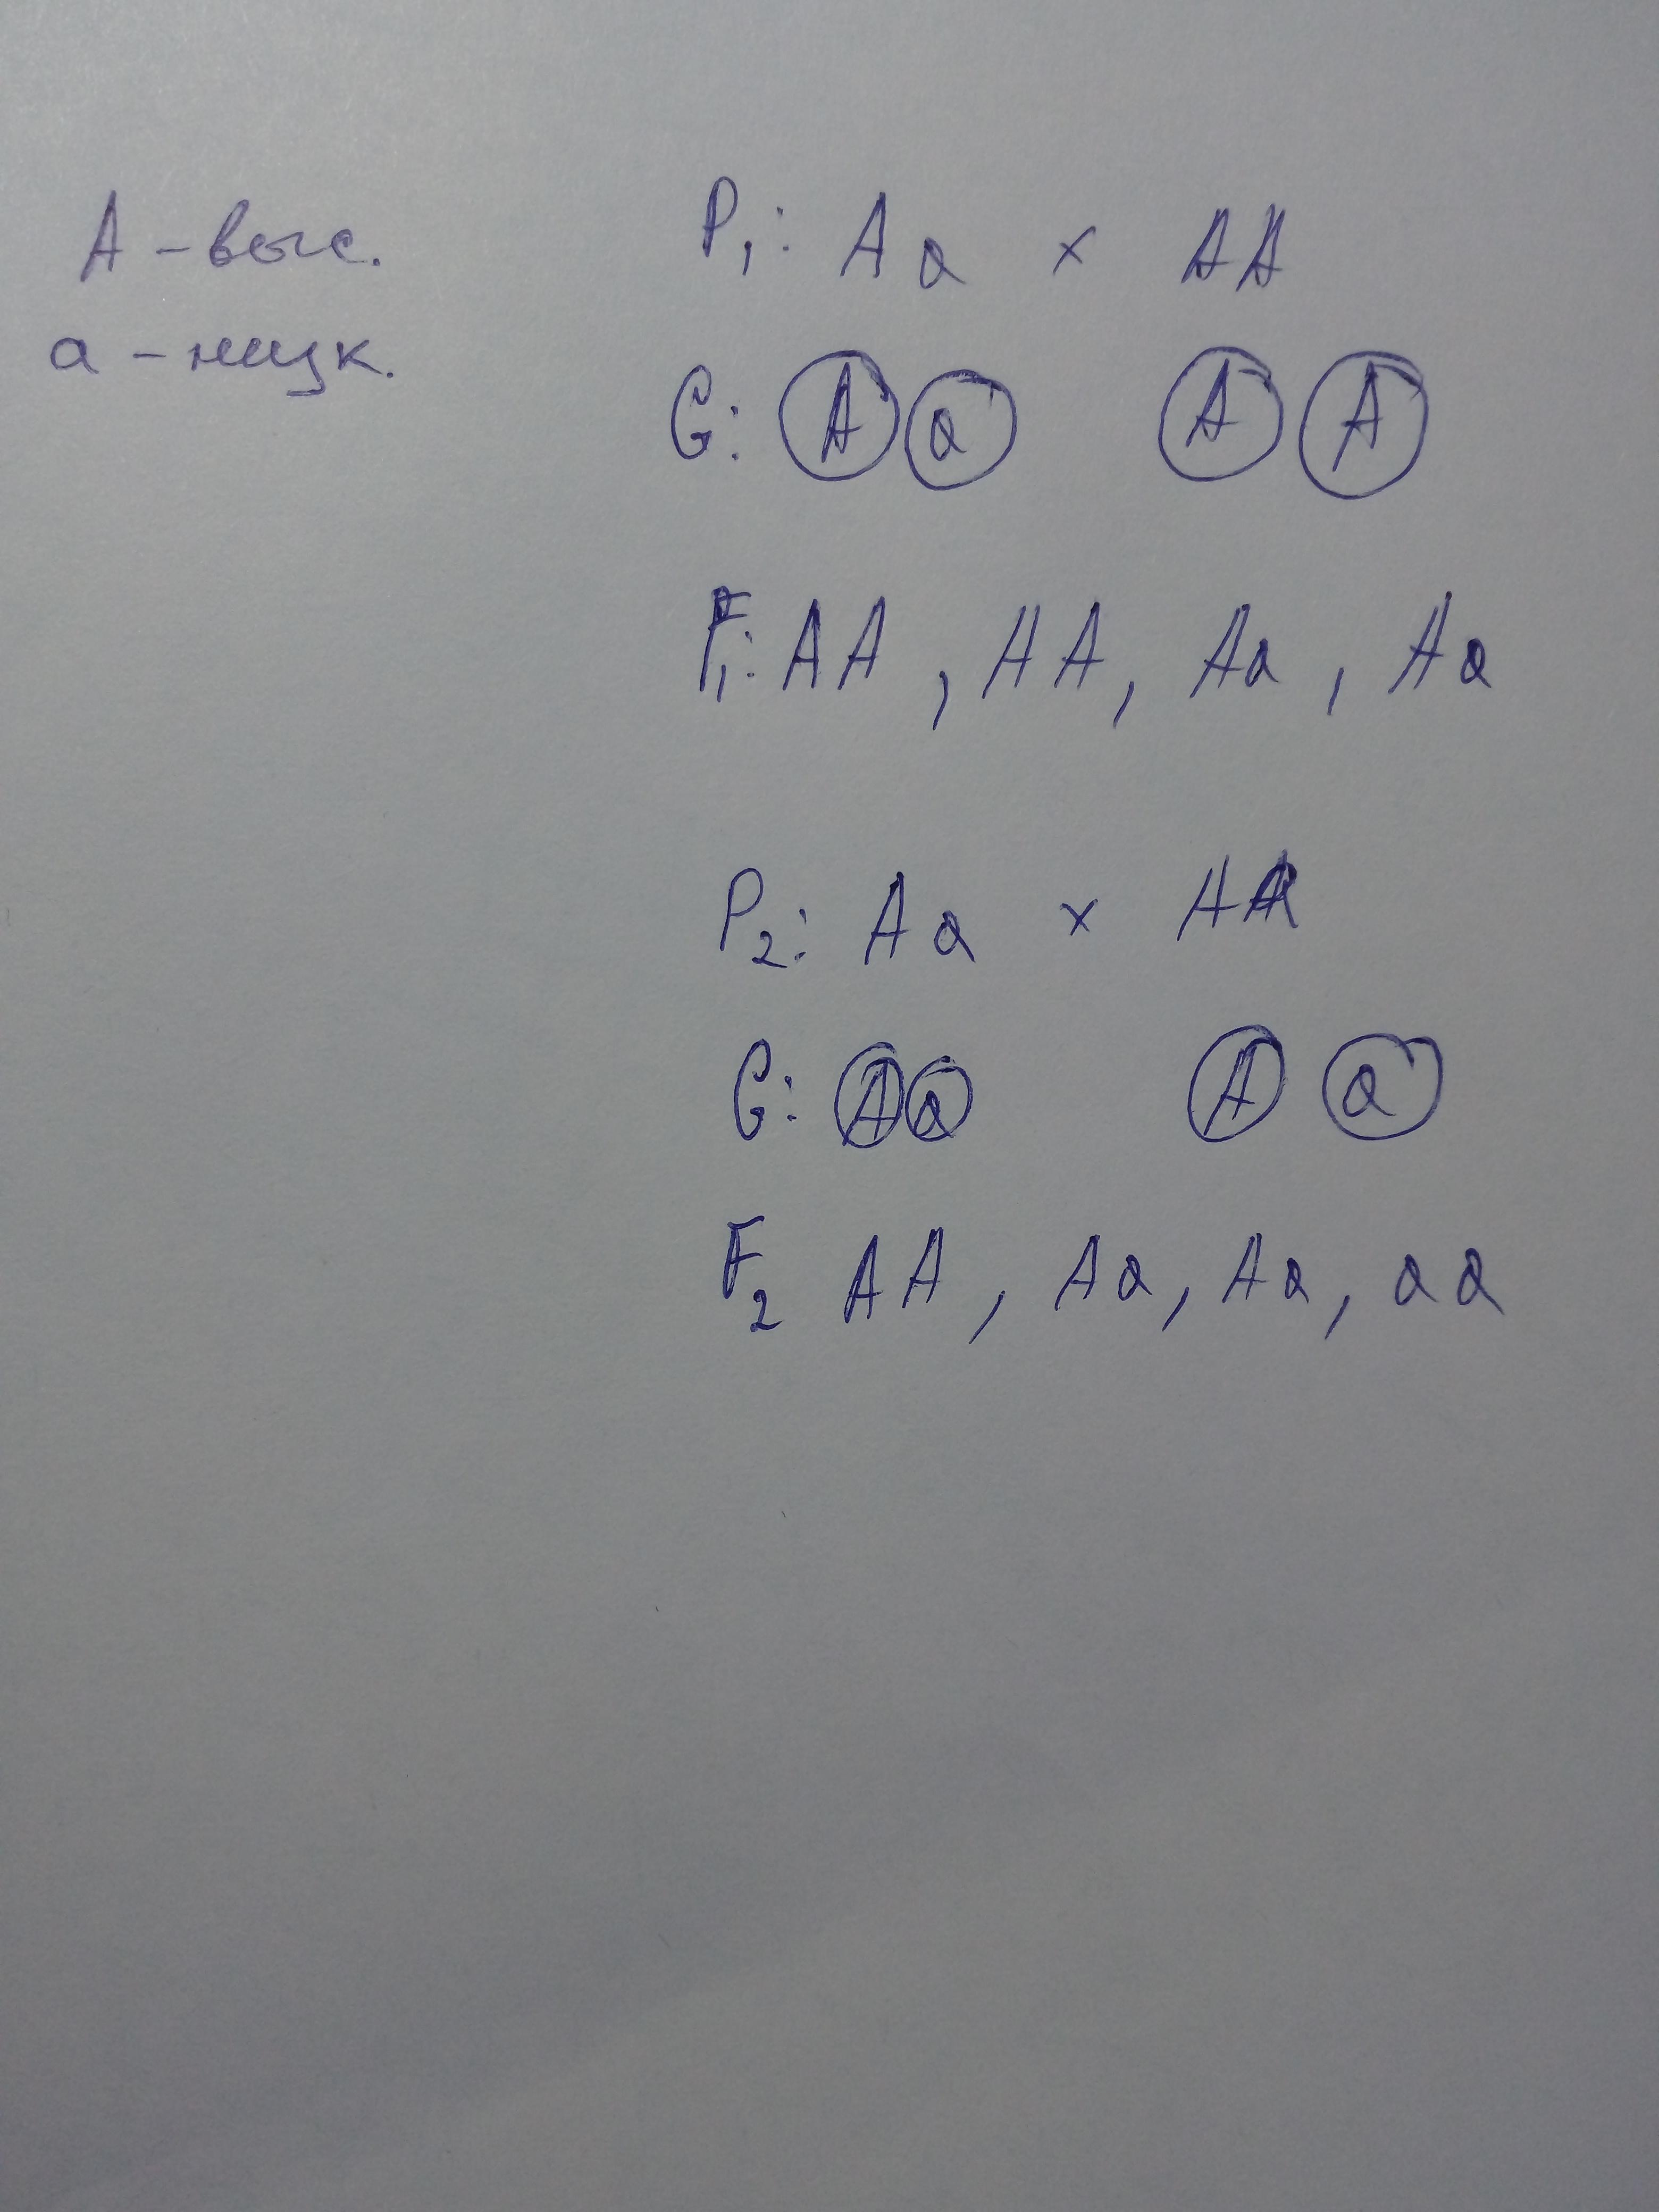 A - выс.
а - низк.
P₁: Aa × AA
G: A a A A
F₁: AA, AA, Aa, Aa
P₂: Aa × AA
G: A a A a
F₂ AA, Aa, Aa, aa